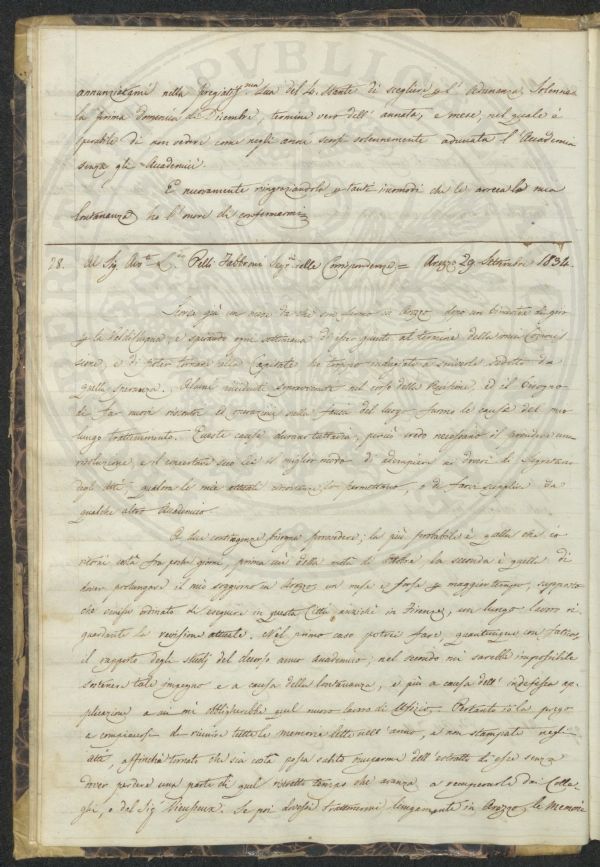 annunziatami nella pregiat.ma Sua del 4. stante di scegliere p. l'adunanza Solenne
la prima domenica di Dicembre, termine vero dell'annata, e mese, nel quale è
sperabile di non vedere come negli anni scorsi solennemente adunata l'Accademia
senza gli Accademici.
E nuovamente ringraziandola p. tanti incomodi che le arreca la mia
lontananza ho l'onore di confermarmi
28. Al Sig. Avv.to Pelli Fabbroni Seg.rio delle Corrispondenze = Arezzo 29 Settembre 1834.
già un mese da che son fermo in Arezzo dopo un di giro
p. la Valdichiana e sperando ogni settimana di esser giunto al termine della mia Commis
sione, e di poter tornare alla Capitale ho tempo indugiato a scriverle sedotto da
quella speranza. Alcuni incidenti sopravvenuti nel corso della Revisione ed il bisogno
di far nuovi riscontri ed operazioni sulla faccia del luogo furono le cause del mio
lungo trattenimento. Queste cause durano tuttavia, perciò credo necessario il prendere una
risoluzione, e il concertare seco Lei il miglior modo di adempiere ai doveri di Segretario
degli Atti, qualora le mie attuali circostanze lo permettano, o di farci supplire da
qualche altro Accademico.
A due contingenze bisogna provvedere; la più probabile è quella che io
ritorni costà fra pochi giorni, prima cioè della metà di Ottobre la seconda è quella di
dover prolungare il mio soggiorno in Arezzo un mese e forse p. maggior tempo, supposto
che venisse ordinato di eseguire in questa Città anzichè in Firenze, un lungo lavoro ri
guardante la revisione attuale. Nel primo caso potrei fare, quantunque con fatica,
il rapporto degli studj del decorso anno accademico; nel secondo mi sarebbe impossibile
sostenere tale impegno e a causa della lontananza, e più a causa dell'indefessa ap
plicazione a cui mi obbligherebbe quel nuovo lavoro di Ufizio. Pertanto io la prego
a compiacersi di riunire tutte le memorie lette nell'anno, e non stampate negli
atti, affinchè tornato che sia costà possa subito occuparmi dell'estratto di esse senza
dover perdere una parte di quel ristretto tempo che avanza a recuperarle dai Colle
ghi, e dal Sig.r Vieusseux. Se poi dovessi trattenermi lungamente in Arezzo, le memorie